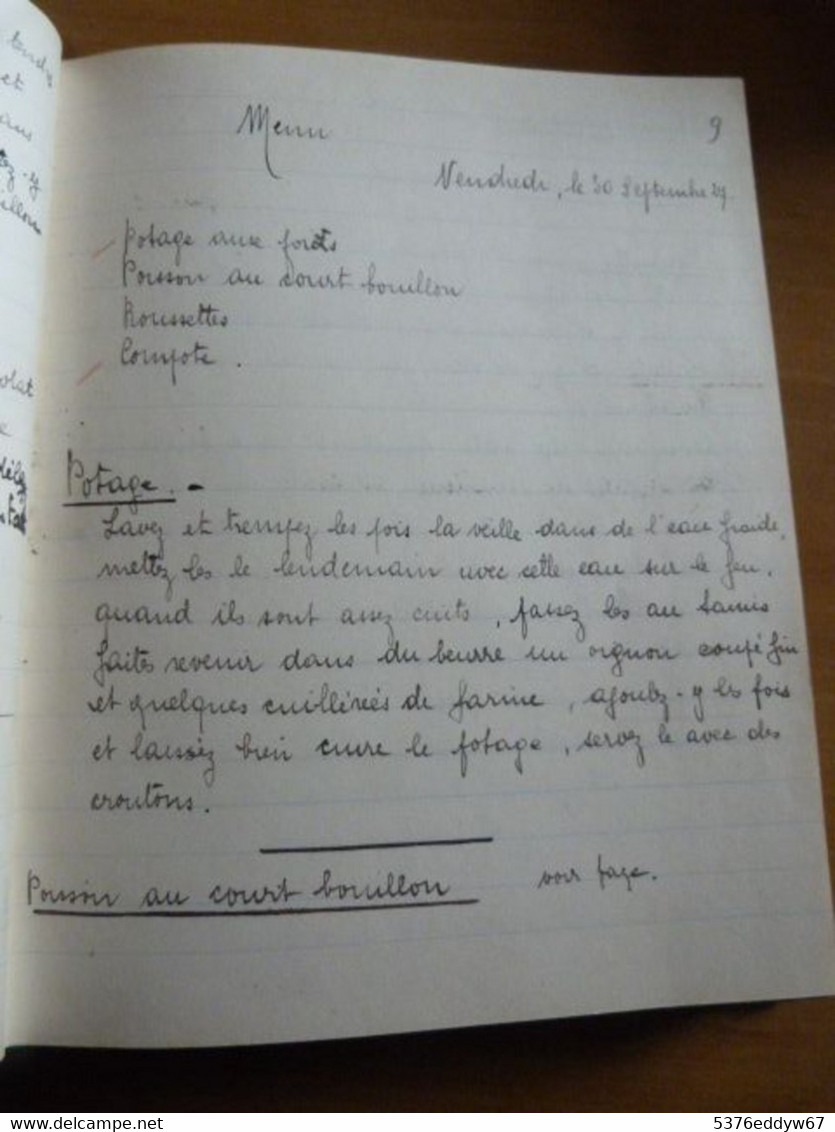 Menu
9
Vendredi, le 30 Septembre 27.
Potage aux
Poisson au court bouillon
Roussettes
Compote.
Potage. -
Lavez et trempez les pois la veille dans de l'eau froide,
mettez les le lendemain avec cette eau sur le feu.
quand ils sont assez cuits, passez les au tamis
faites revenir dans du beurre un oignon coupé fin
et quelques cuillérées de farine, ajoutez-y les pois
et laissez bien cuire le potage, servez le avec des
croutons.
Poisson au court bouillon voir page.
et
5376eddyw67